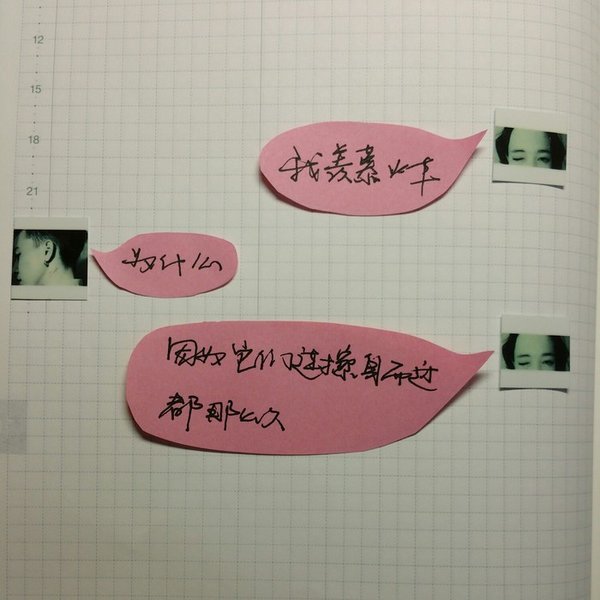 12
15
18
21
我羡慕火车
为什么
因为它们连擦身而过
都那么久